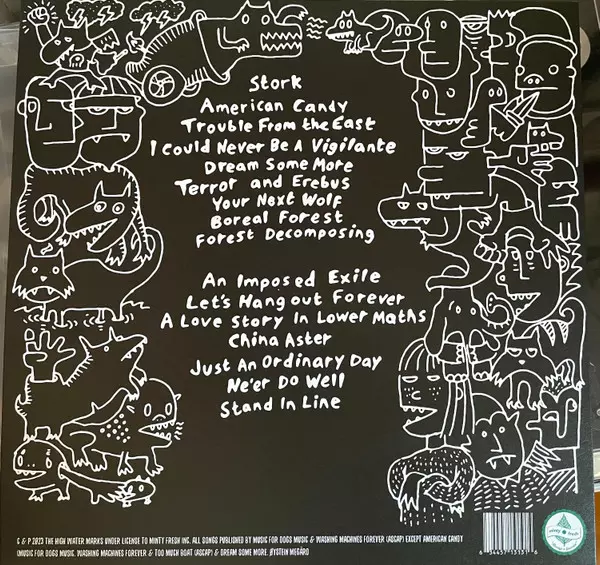 Stork
American Candy
Trouble From the East
I Could Never Be A Vigilante
Dream Some More
Terror and Erebus
Your Next Wolf
Boreal Forest
Forest Decomposing
An Imposed Exile
Let's Hang out Forever
A Love Story In Lower Maths
China Aster
Just An Ordinary Day
Ne'er Do Well
Stand In Line
© & P 2023 THE HIGH WATER MARKS UNDER LICENSE TO MINTY FRESH INC. ALL SONGS PUBLISHED BY MUSIC FOR DOGS MUSIC & WASHING MACHINES FOREVER (ASCAP) EXCEPT AMERICAN CANDY
(MUSIC FOR DOGS MUSIC, WASHING MACHINES FOREVER & TOO MUCH BOAT (ASCAP) & DREAM SOME MORE, ØYSTEIN MEGÅRD
minty fresh